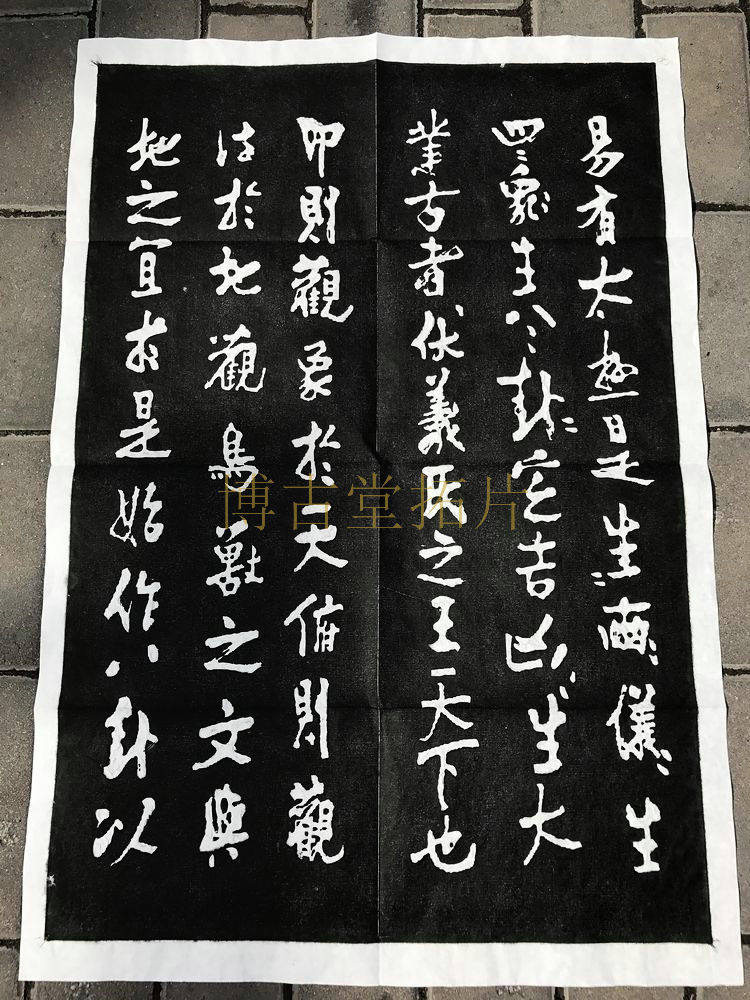 易有太極是生〻兩〻儀〻生
四〻象〻生八〻卦〻定吉凶〻生大
業古者伏羲氏之王天下也
仰則觀象於天俯則觀
法於地觀鳥獸之文與
地之宜於是始作八卦以
博古堂拓片